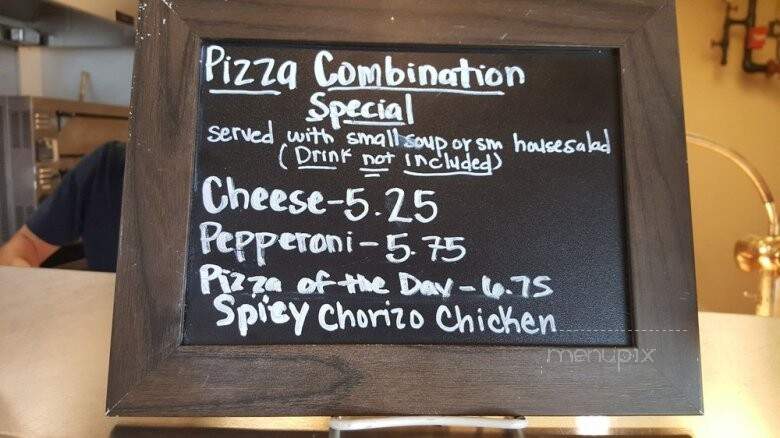 Pizza Combination
Special
served with small soup or sm house salad
(Drink not included)
Cheese-5.25
Pepperoni-5.75
Pizza of the Day-6.75
Spicy Chorizo Chicken
menupix